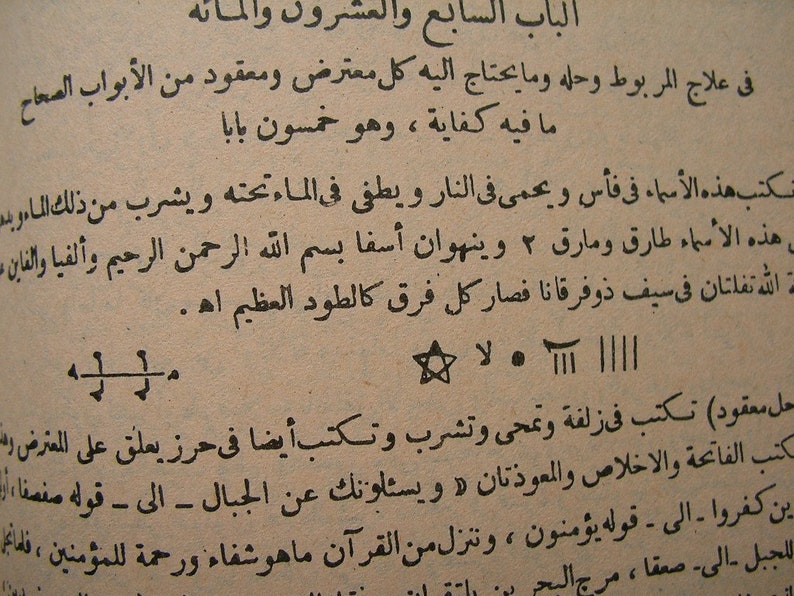 الباب السابع والعشرون والمائه
فى علاج المربوط وحله وما يحتاج اليه كل معترض ومعقود من الأبواب الصحاح
ما فيه كفاية ، وهو خمسون بابا
تكتب هذه الأسماء فى فأس ويحمى فى النار ويطفى فى الماء تحته ويشرب من ذلك الماء
هذه الأسماء طارق ومارق ٢ وينهوان أسفا بسم الله الرحمن الرحيم وألفيا والفاين
الله تفلتان فى سيف ذو فرقانا فصار كل فرق كالطود العظيم اه .
لا
حل معقود) تكتب فى زلفة وتمحى وتشرب وتكتب أيضا فى حرز يعلق على المعترض
تكتب الفاتحة والاخلاص والمعوذتان « ويسئلونك عن الجبال ـ الى ـ قوله صفصفا ،
كفروا ـ الى ـ قوله يؤمنون ، وننزل من القرآن ما هو شفاء ورحمة للمؤمنين ، فلما
للجبل ـ الى ـ صعقا ، مرج البحرين يلتقيان